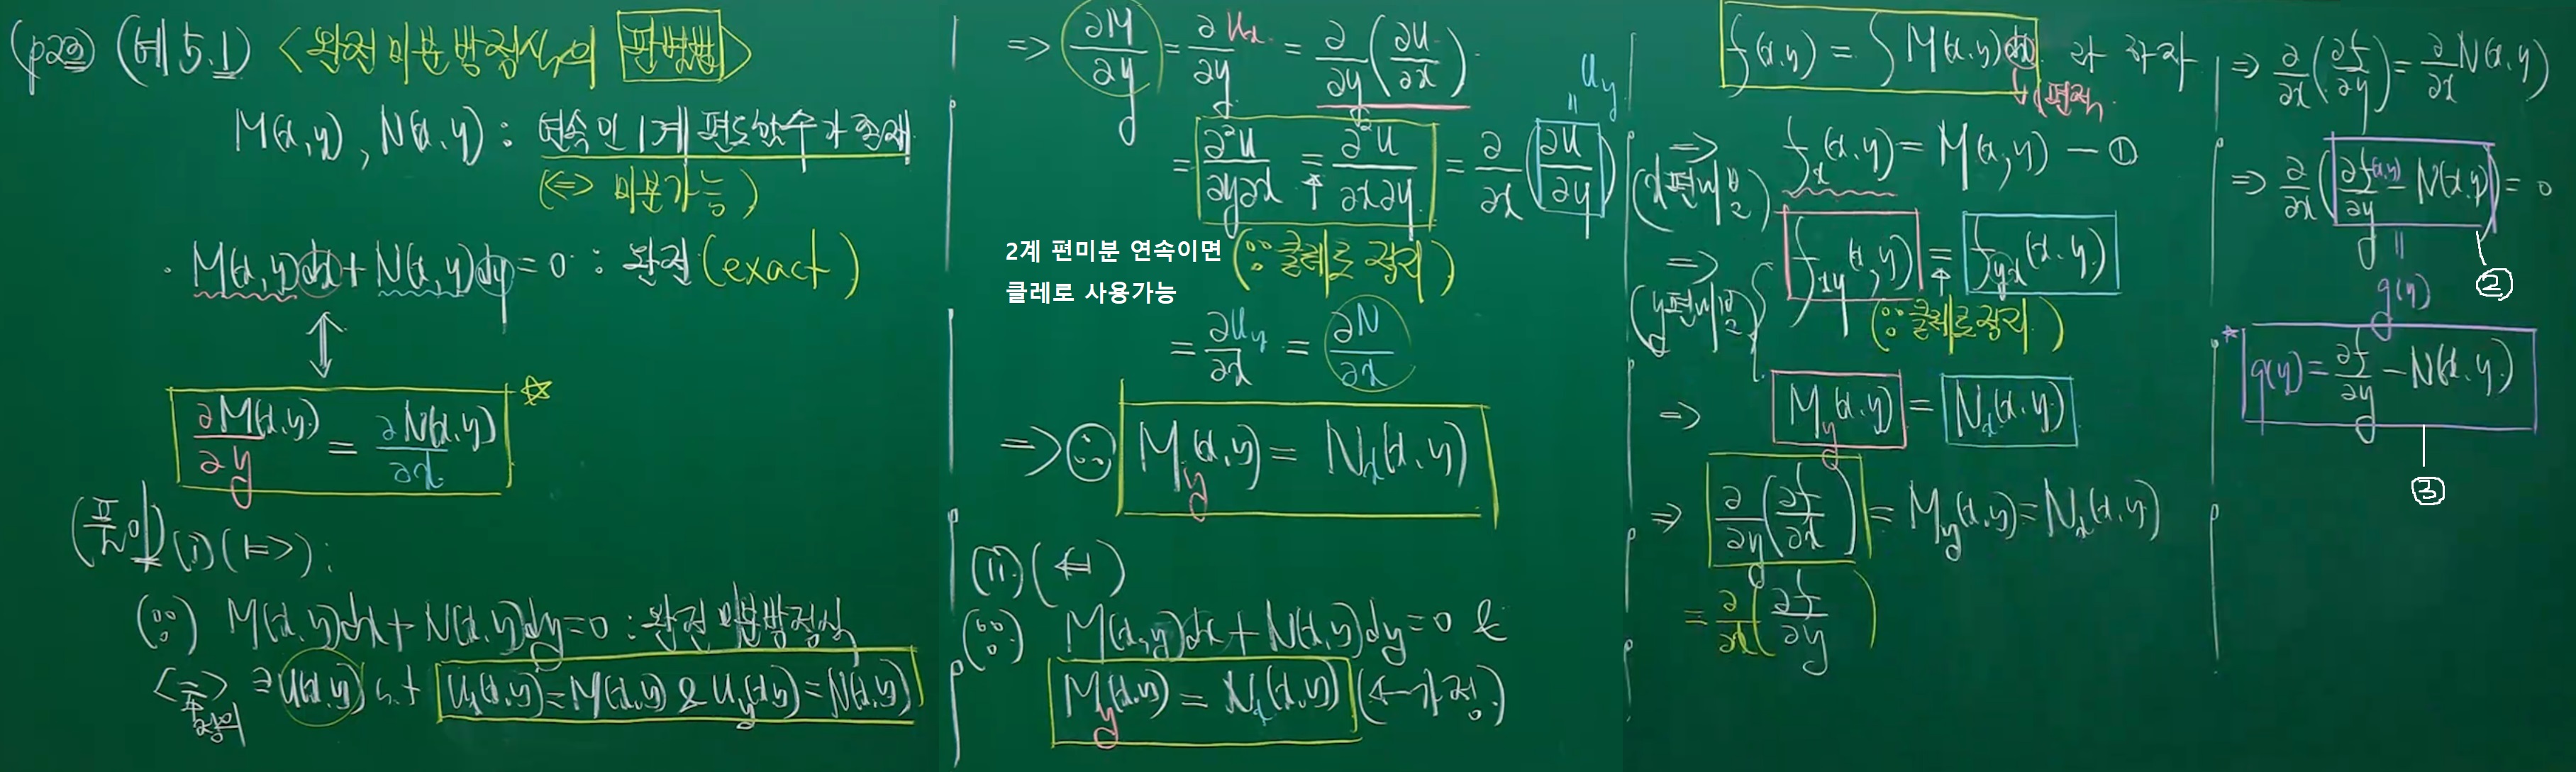 (p23) (예 5.1) <완전미분방정식의 판별법>
M(x,y), N(x,y) : 연속인 1계 편도함수가 존재
(<=> 미분가능)
· M(x,y)dx + N(x,y)dy = 0 : 완전(exact)
↕
∂M(x,y)/∂y = ∂N(x,y)/∂x ☆
(풀이) (i) (=>) :
(∵) M(x,y)dx + N(x,y)dy = 0 : 완전미분방정식
<=> ∃ u(x,y) s.t u_x(x,y) = M(x,y) & u_y(x,y) = N(x,y)
정의
=> ∂M/∂y = ∂u_x/∂y = ∂/∂y(∂u/∂x)
= ∂²u/∂y∂x = ∂²u/∂x∂y = ∂/∂x(∂u/∂y)
u_y
=
↑
2계 편미분 연속이면
클레로 사용가능
(∵ 클레로 정리)
= ∂u_y/∂x = ∂N/∂x
=> ∴ M_y(x,y) = N_x(x,y)
(ii) (<=)
(∵) M(x,y)dx + N(x,y)dy = 0 &
M_y(x,y) = N_x(x,y) (←가정)
f(x,y) = ∫M(x,y)dx 라 하자
↳ 편적
=> f_x(x,y) = M(x,y) - ①
(x편미분)
=> f_xy(x,y) = f_yx(x,y)
(y편미분)
↑
(∵ 클레로정리)
=> M_y(x,y) = N_x(x,y)
=> ∂/∂y(∂f/∂x) = M_y(x,y) = N_x(x,y)
= ∂/∂x(∂f/∂y)
=> ∂/∂x(∂f/∂y) = ∂/∂x N(x,y)
=> ∂/∂x(∂f(x,y)/∂y - N(x,y)) = 0
②
=
g(y)
* g(y) = ∂f/∂y - N(x,y)
③